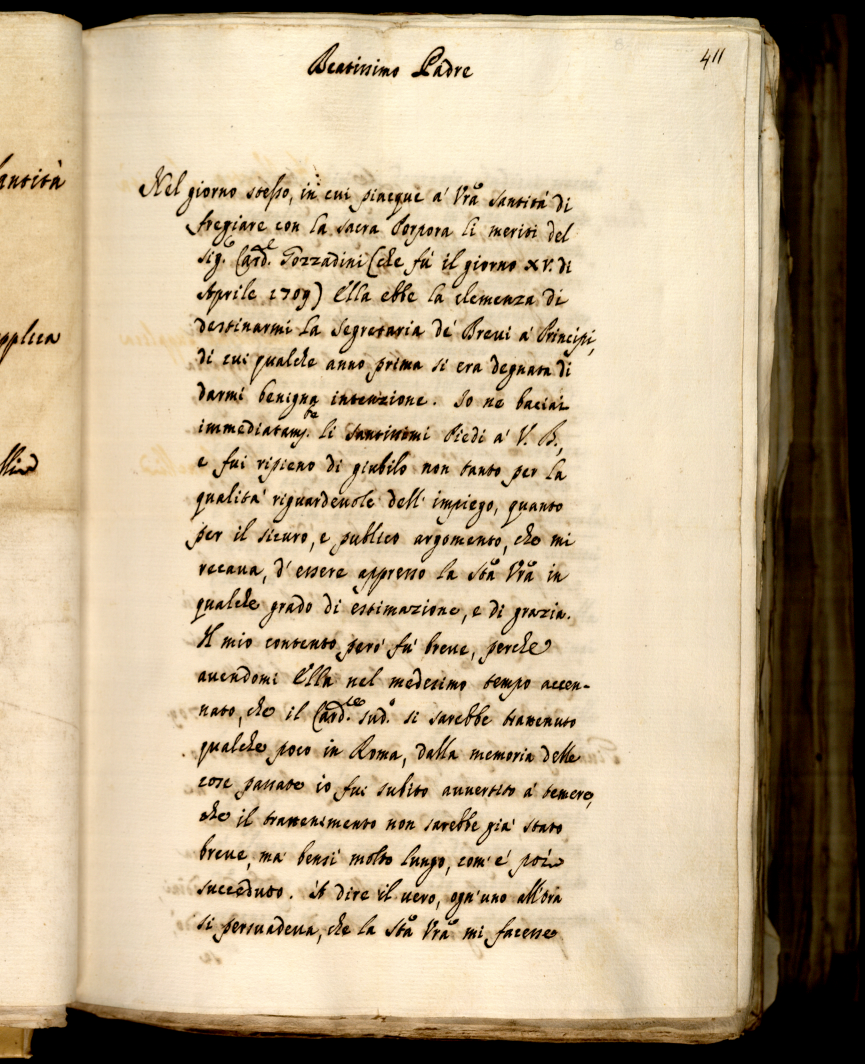 411
Beatissimo Padre
Nel giorno stesso, in cui piacque a' Vrā Santità di
fregiare con la sacra Porpora li meriti del
Sig.r Card.e Gozzadini (che fù il giorno XV. di
Aprile 1709) Ella ebbe la clemenza di
destinarmi la Segretaria de' Brevi a' Principi,
di cui qualche anno prima si era degnata di
darmi benigna intenzione. Io ne baciai
immediatam.te li santissimi Piedi a' V. B.,
e fui ripieno di giubilo non tanto per la
qualità riguardevole dell' impiego, quanto
per il sicuro, e publico argomento, che mi
recava, d'essere appresso la Stā Vrā in
qualche grado di estimazione, e di grazia.
Il mio contento però fù breve, perche
avendomi Ella nel medesimo tempo accen-
nato, che il Card.le sud.o si sarebbe trattenuto
qualche poco in Roma, dalla memoria delle
cose passate io fui subito avvertito à temere,
che il trattenimento non sarebbe già stato
breve, mà bensì molto lungo, com' è poi
succeduto. A dire il vero, ogn'uno all'ora
si persuadeva, che la Stā Vrā mi facesse
antità
pplica